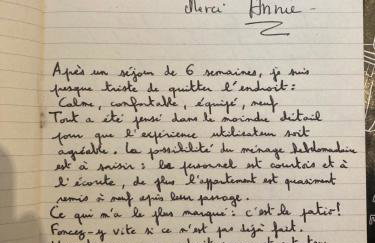 Merci Annie -
Après un séjour de 6 semaines, je suis
presque triste de quitter l'endroit :
Calme, confortable, équipé, neuf
Tout a été pensé dans le moindre détail
pour que l'expérience utilisateur soit
agréable. La possibilité du ménage hebdomadaire
est à saisir : le personnel est courtois et à
l'écoute, de plus l'appartement est quasiment
remis à neuf après leur passage.
Ce qui m'a le plus marqué : c'est le patio !
Foncez-y vite si ce n'est pas déjà fait.